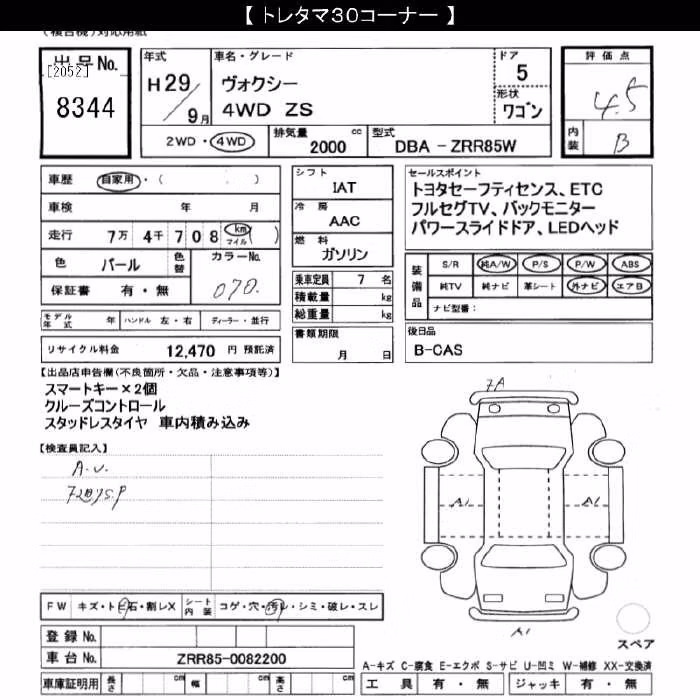 【 トレタマ30コーナー 】
(複合機)対応用紙
出品No.
[2052]
8344
年式
H29/9月
車名・グレード
ヴォクシー
4WD ZS
ドア
5
形状
ワゴン
評価点
4.5
内装
B
2WD・4WD
排気量
2000 cc
型式
DBA - ZRR85W
車歴 自家用・( )
車検 年 月
走行 7万 4千 708 km マイル ( )
色 パール 色替 カラーNo. 070.
保証書 有・無
モデル年式 年 ハンドル 左・右 ディーラー・並行
リサイクル料金 12,470 円 預託済
シフト
IAT
冷房
AAC
燃料
ガソリン
乗車定員 7 名
積載量 kg
総重量 kg
書類期限
月 日
セールスポイント
トヨタセーフティセンス、ETC
フルセグTV、バックモニター
パワースライドドア、LEDヘッド
装備品
S/R 純A/W P/S P/W ABS
純TV 純ナビ 革シート 外ナビ エアB
ナビ型番:
後日品
B-CAS
【出品店申告欄(不良箇所・欠品・注意事項等)】
スマートキー×2個
クルーズコントロール
スタッドレスタイヤ 車内積み込み
【検査員記入】
A.U.
7A
A1 A1
A1
スペア
FW キズ・トビ石・割レX シート内装 コゲ・穴・汚レ・シミ・破レ・スレ
登録No.
車台No. ZRR85-0082200
A-キズ C-腐食 E-エクボ S-サビ U-凹ミ W-補修 XX-交換済
車庫証明用 長さ cm 幅 cm 高さ cm
工具 有・無 ジャッキ 有・無